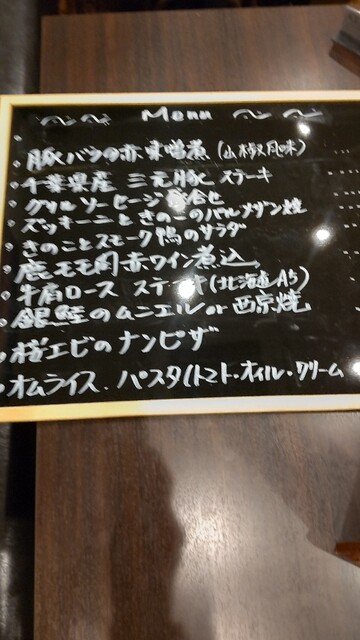 ～～ Menu ～～
・豚バラの赤味噌煮(山椒風味)
・千葉県産 三元豚 ステーキ
・グリルソーセージ 盛合せ
・ズッキーニときのこのパルメザン焼
・きのことスモーク鴨のサラダ
・鹿モモ肉赤ワイン煮込
・牛肩ロース ステーキ(北海道A5)
・銀鮭のムニエル or 西京焼
・桜エビのナンピザ
・オムライス、パスタ(トマト・オイル・クリーム